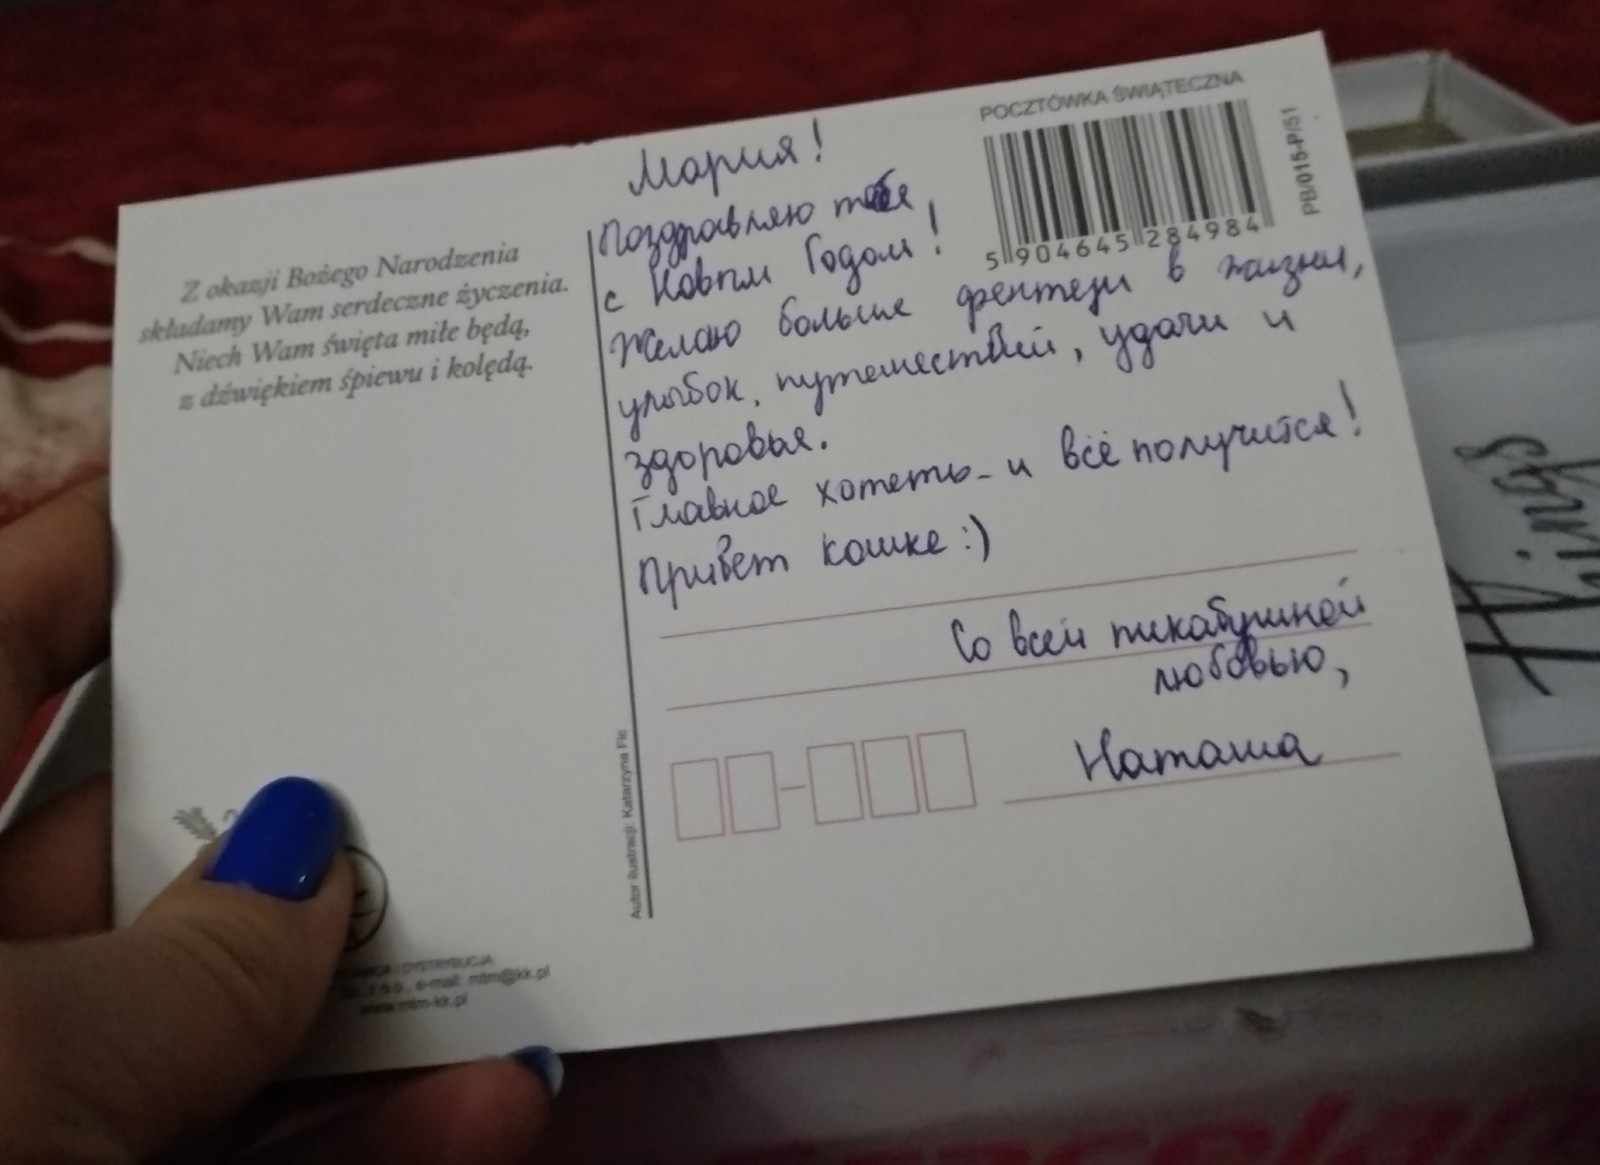 Z okazji Bożego Narodzenia
składamy Wam serdeczne życzenia.
Niech Wam święta miłe będą,
z dźwiękiem śpiewu i kolędą.
POCZTÓWKA ŚWIĄTECZNA
5 904645 284984
PB/015-P/51
Мария!
Поздравляю тебя
с Новым Годом!
Желаю больше фентези в жизни,
улыбок, путешествий, удачи и
здоровья.
Главное хотеть - и всё получится!
Привет кошке :)
Со всей пикабушной
любовью,
Наташа
Autor ilustracji: Katarzyna Fic
DYSTRYBUCJA:
e-mail: mtm@kk.pl
www.mtm-kk.pl
Kings